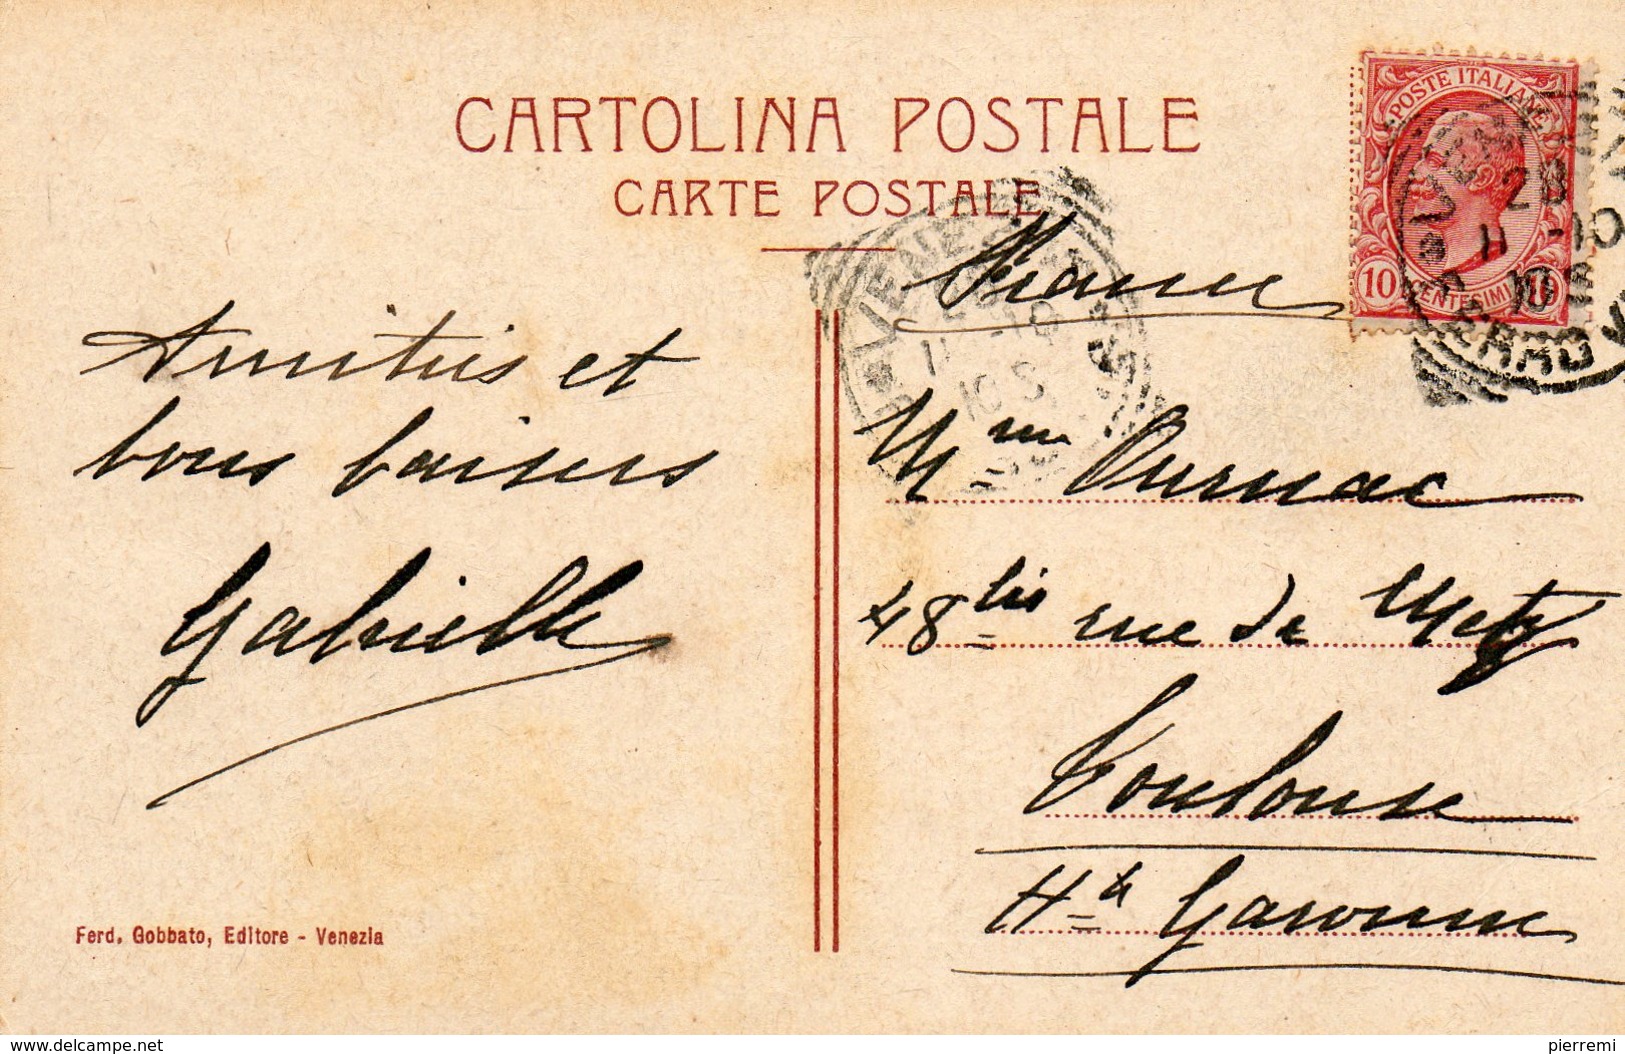 CARTOLINA POSTALE
CARTE POSTALE
France
POSTE ITALIANE
10 CENTESIMI 10
28
11 -10
10 S
VENEZIA
Amitiés et
bons baisers
Gabrielle
Mme Durnac
48 bis rue de Metz
Toulouse
Hte Garonne
Ferd. Gobbato, Editore - Venezia
www.delcampe.net
pierremi